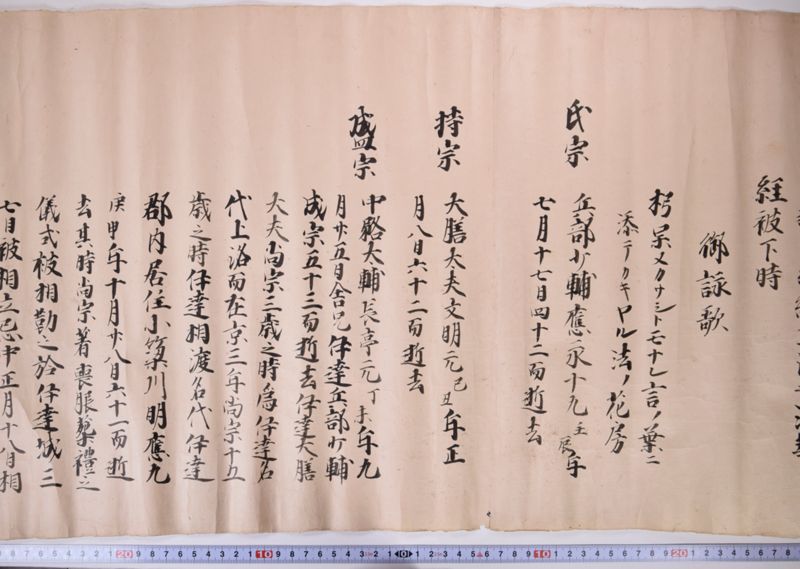 経被下時
御詠歌
ヲカサシトモナレ言ノ葉ニ
添テカキヤル法ノ花房
氏宗
兵部少輔應永十九壬辰年
七月十七日四十二而逝去
持宗
大膳大夫文明元己丑年正
月八日六十二而逝去
盛宗
中務大輔長亭元丁未年九
月廿五日舎兄伊達兵部少輔
成宗五十三而逝去伊達大膳
大夫尚宗三歳之時為伊達名
代上洛而在京三年尚宗十五
歳之時伊達相渡名代伊達
郡内居住小簗川明應九
庚申年十月廿八日六十一而逝
去其時尚宗著喪服葬禮之
儀式被相勤之於伊達城三
七日被相立忌中正月十八日相